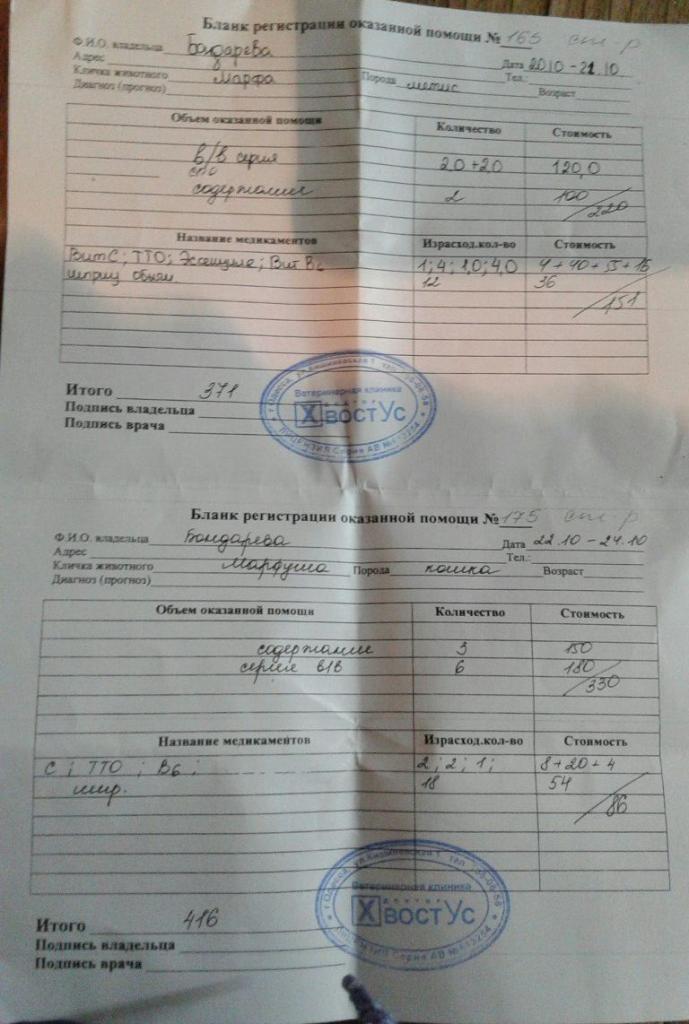 Бланк регистрации оказанной помощи № 165 ст-р
Ф.И.О. владельца Бондарева
Дата 20.10 - 21.10
Адрес
Тел.:
Кличка животного Марфа Порода метис Возраст
Диагноз (прогноз)
Объем оказанной помощи Количество Стоимость
в/в серия 20+20 120,0
содержание 2 100
220
Название медикаментов Израсход.кол-во Стоимость
Вит С; ТТО; Эссенциале; Вит В6 1; 4; 2,0; 4,0 4+40+55+16
шприц 12 36
151
Итого 371
Подпись владельца
Подпись врача
Ветеринарная клиника
доктор
ХвостУс
Бланк регистрации оказанной помощи № 175 ст-р
Ф.И.О. владельца Бондарева Дата 22.10 - 24.10
Адрес Тел.:
Кличка животного Марфуша Порода кошка Возраст
Диагноз (прогноз)
Объем оказанной помощи Количество Стоимость
содержание 3 150
серия в/в 6 180
330
Название медикаментов Израсход.кол-во Стоимость
С; ТТО; В6; 2; 2; 1; 8+20+4
шпр. 18 54
86
Итого 416
Подпись владельца
Подпись врача
Ветеринарная клиника
доктор
ХвостУс